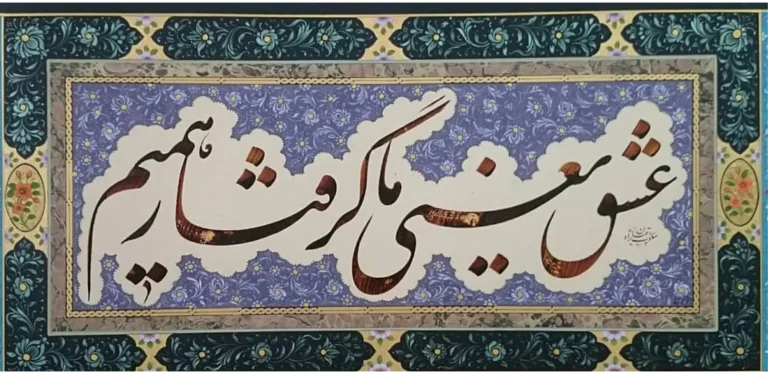 عشق یعنی ما گرفتار همیم